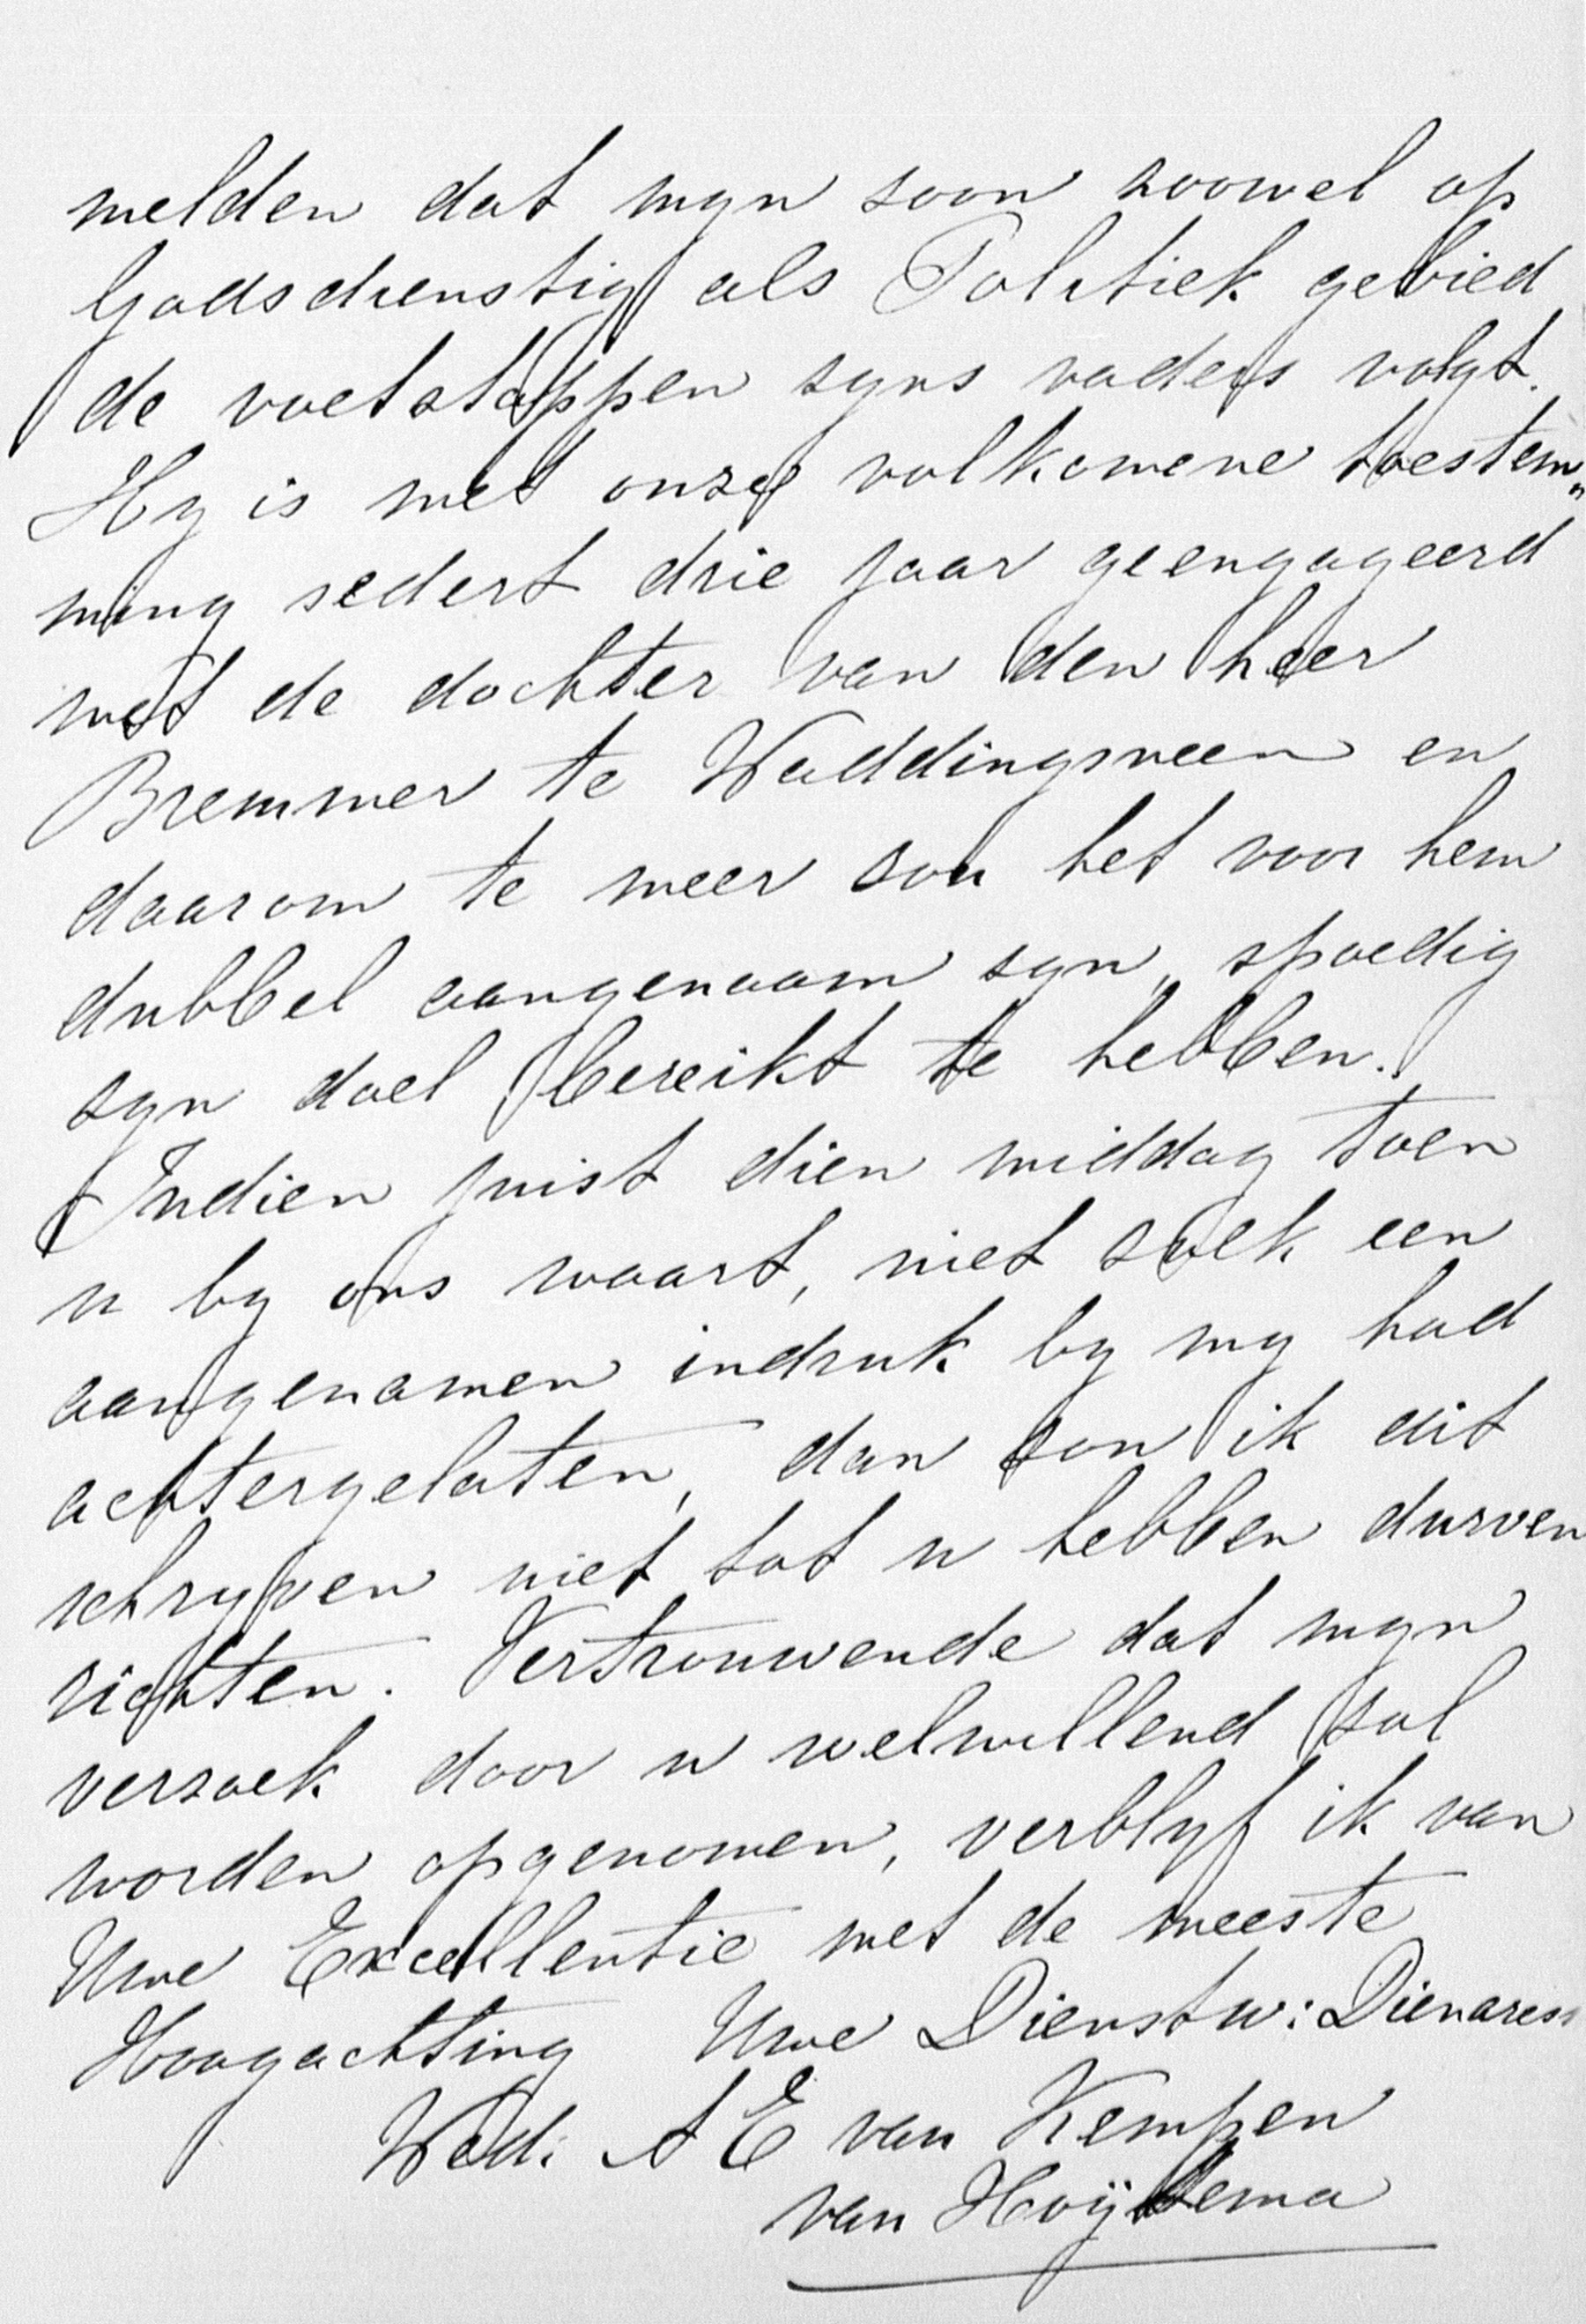 melden dat myn zoon zoowel op
Godsdienstig als Politiek gebied
de voetstappen zyns vaders volgt.
Hy is met onze volkomene toestem„
ming sedert drie jaar geengageerd
met de dochter van den heer
Bremmer te Waddingsveen en
daarom te meer zou het voor hem
dubbel aangenaam zyn, spoedig
zyn doel bereikt te hebben.
Indien juist dien middag toen
u by ons waart, niet zulk een
aangenamen indruk by my had
achtergelaten, dan zou ik dit
schryven niet tot u hebben durven
richten. Vertrouwende dat myn
verzoek door u welwillend zal
worden opgenomen, verblyf ik van
Uwe Excellentie met de meeste
Hoogachting Uwe Dienstw: Dienaress
Wed: A E van Kempen
van Hoÿtema